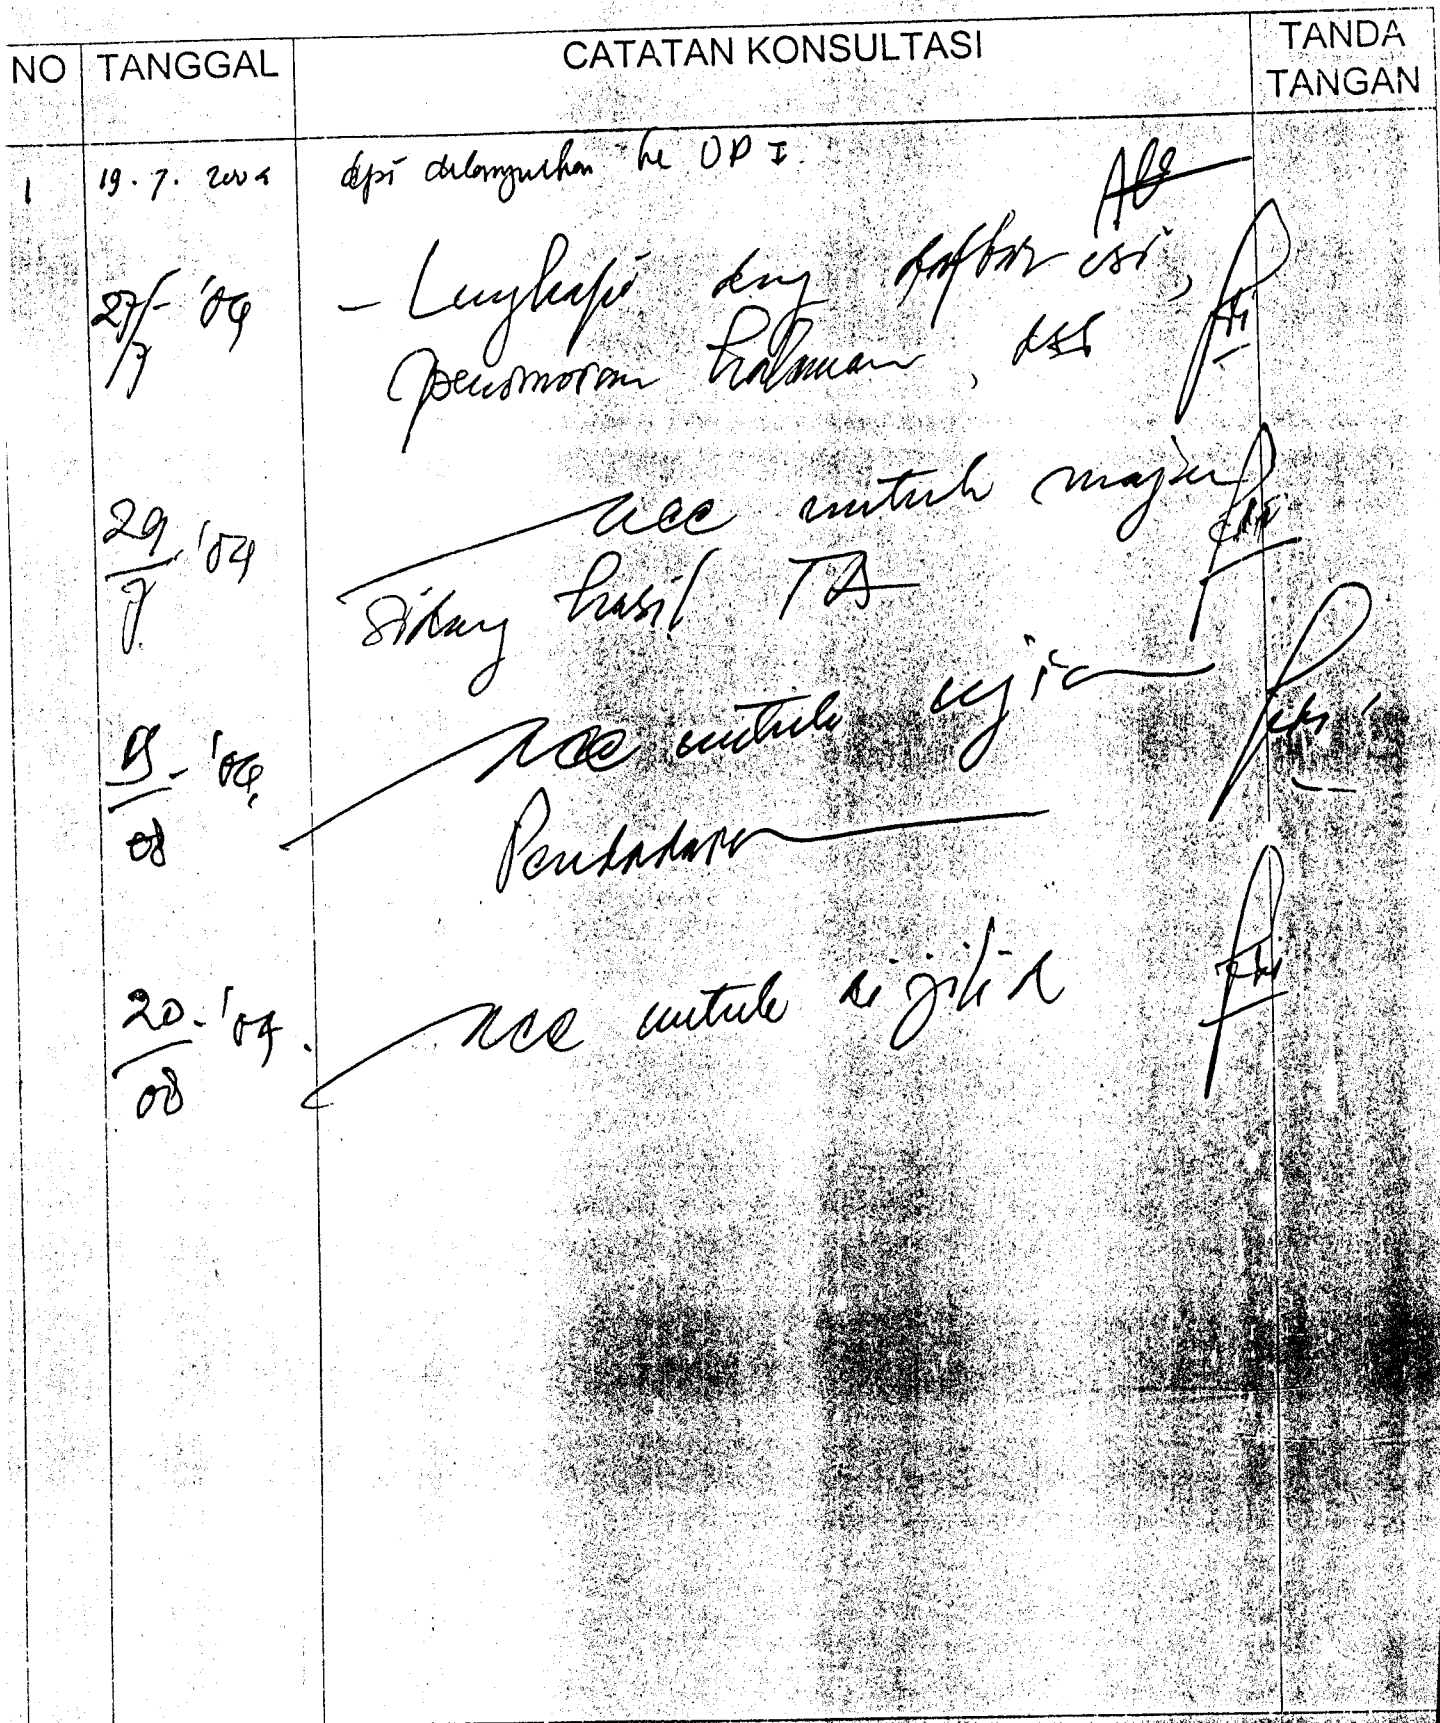 NO TANGGAL CATATAN KONSULTASI TANDA TANGAN
1 19.7.2004 dilanjutkan ke DP I.
27/7 '04 - Lengkapi deng daftar isi,
penomoran halaman, dll
29/7 '04 acc untuk maju
sidang hasil TA
'04 08 acc untuk ujian
Pendadaran
20/08 '04. acc untuk dijilid